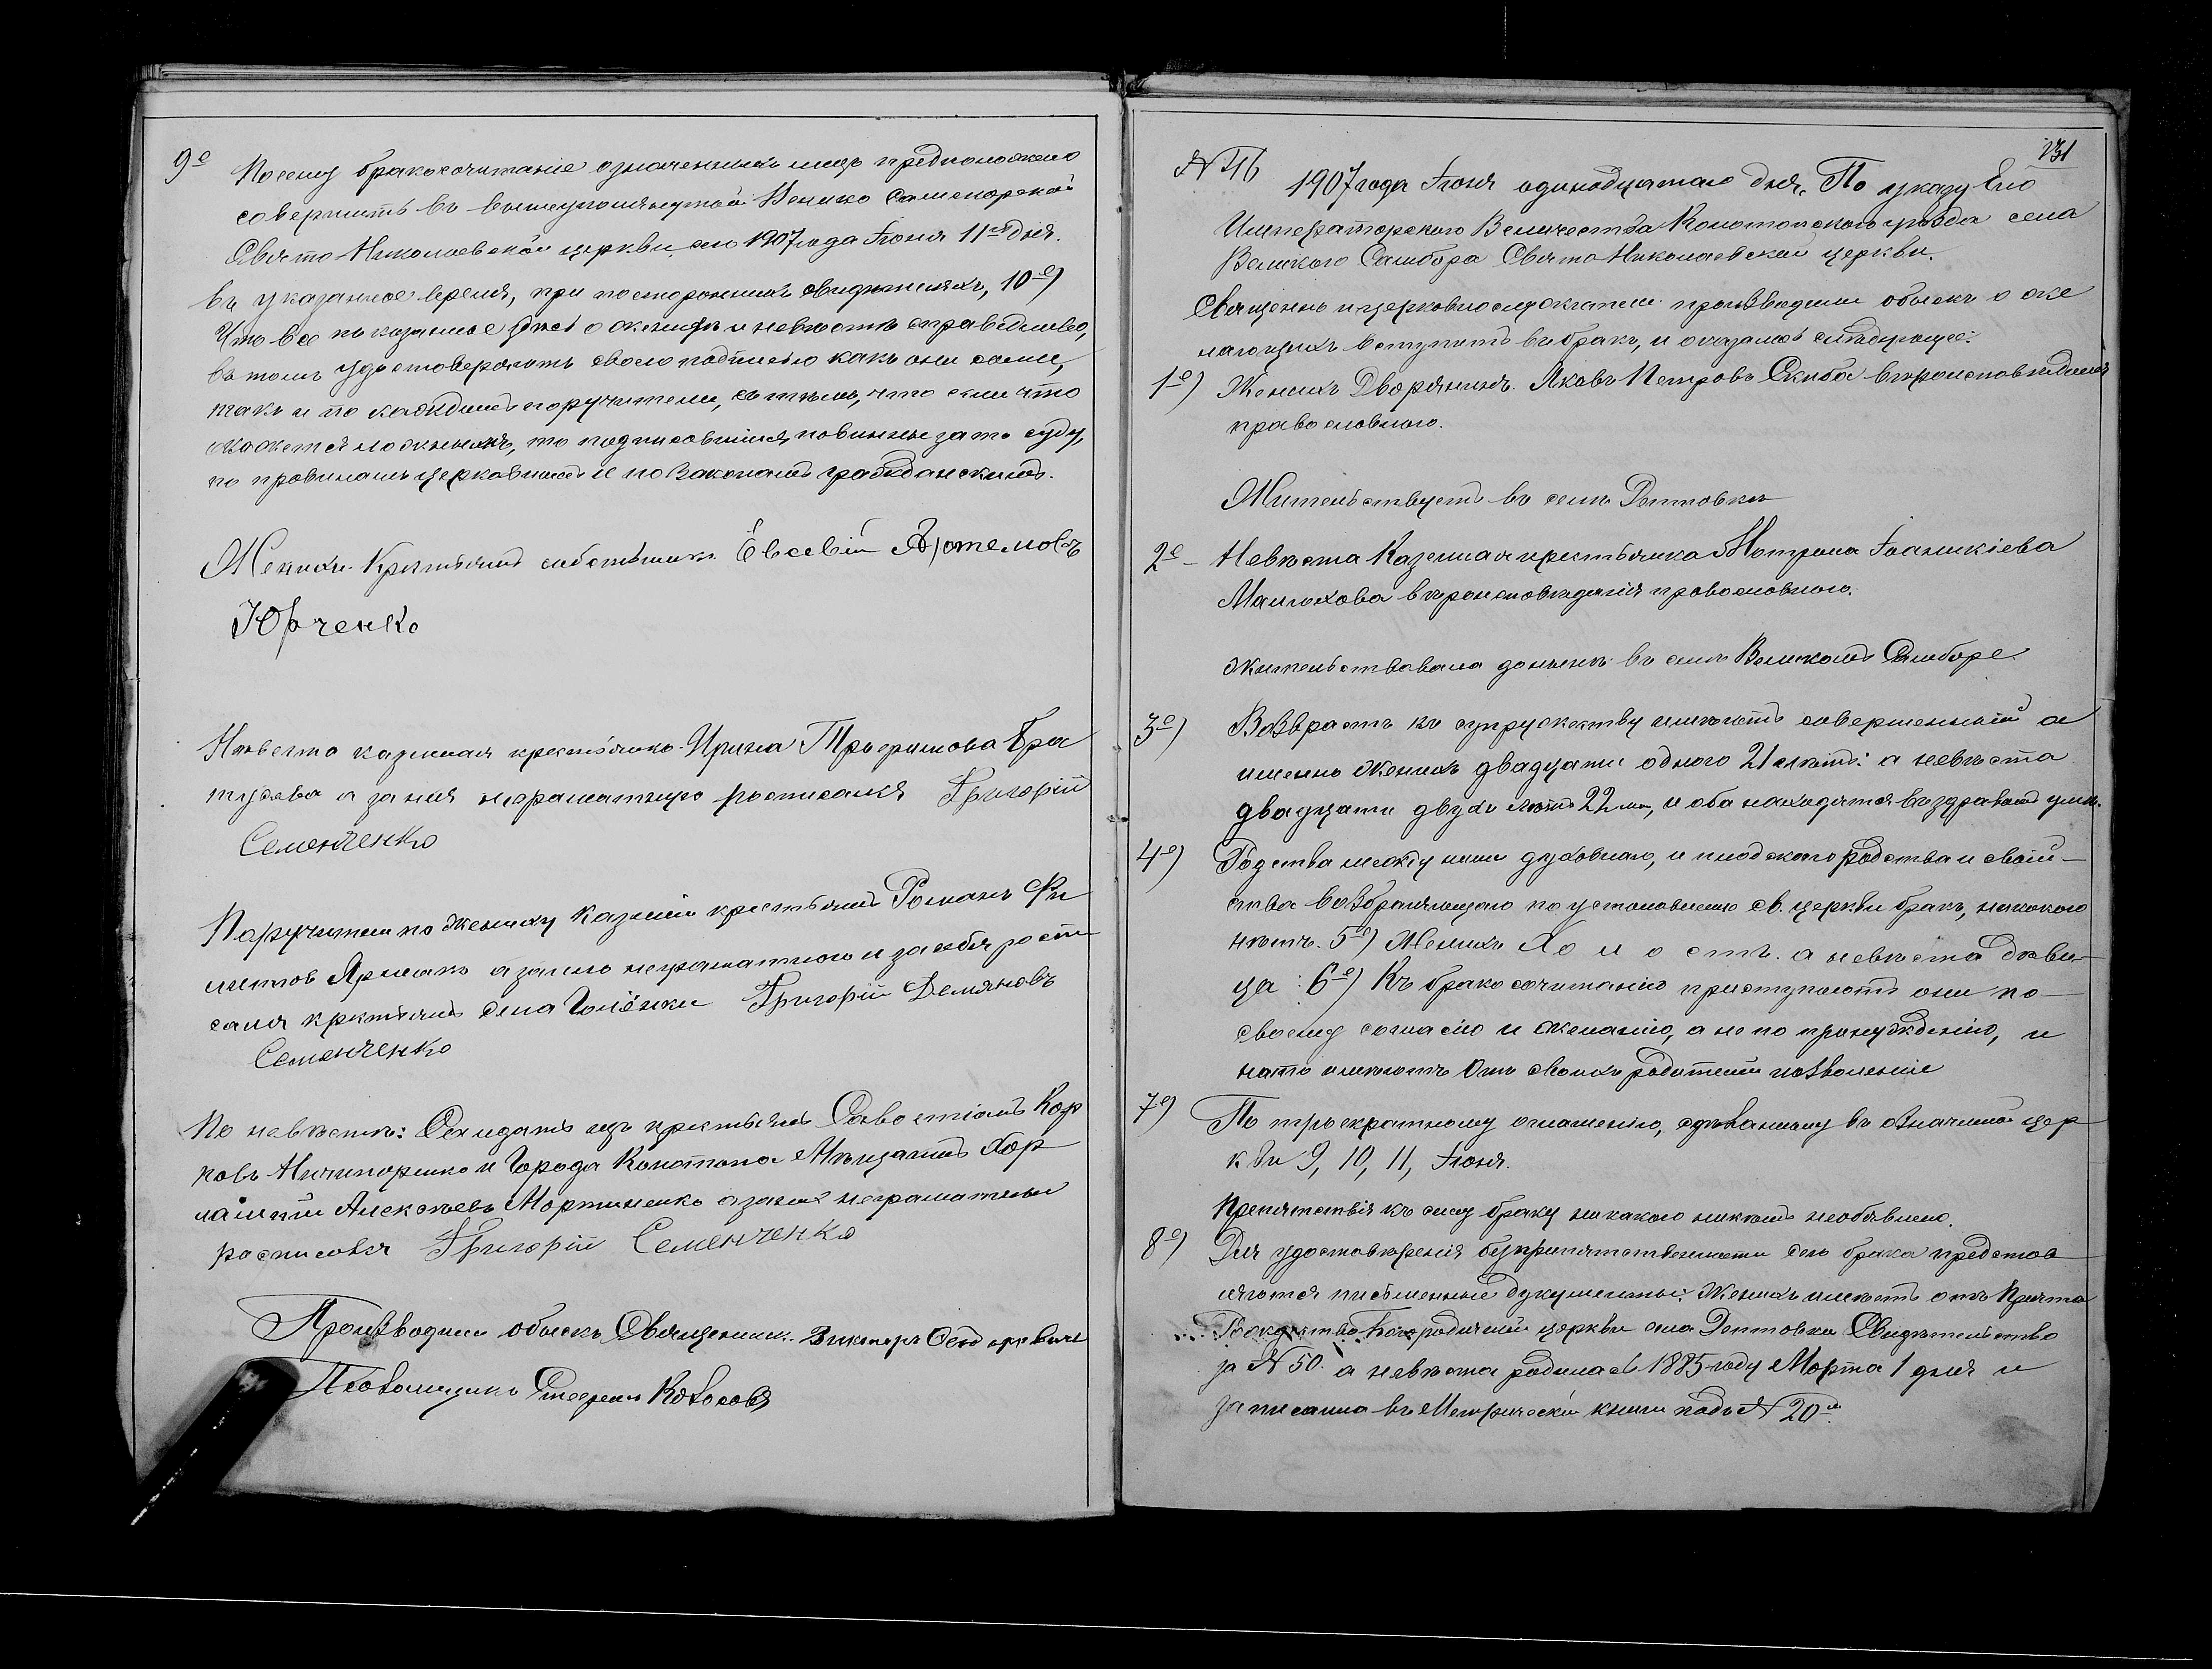 9е Посему бракосочитаніе означенныхъ лицъ предположено
совершить въ вышеупомянутой Велико Самборской
Свято-Николаевской церкви, сего 1907 года Іюня 11го дня.
въ указанное время, при постороннихъ свидѣтеляхъ, 10е)
Что все показанное здѣсь о женихѣ и невѣстѣ справедливо,
въ томъ удостоверяютъ своею подписью какъ они сами,
такъ и по каждымъ поручители, съ тѣмъ, что если что
окажется ложнымъ, то подписовшіися повинны за то суду,
по правиламъ церковнымъ и по Законамъ гражданскимъ.
Женихъ Крестьянинъ собственникъ Евсевій Артемовъ
Юрченко
Невеста казенная крестьянка Ирина Трофимова
а за нея неграматную росписался Григорій
Семенченко
Поручители по жениху Казеный крестьянинъ Романъ Фи
липовъ Ярмакъ а за него неграматного и за себя роспи
сался крестьянинъ села Голёнки Григорій Демяновъ
Семенченко
По невѣсте: изъ крестьянъ Савостіанъ Кар
повъ Ничипоренко и Города Конотопа Мещанинъ Хар
лампій Алексѣевъ Мартиненко а за нихъ неграматныхъ
росписовся Григорій Семенченко
Производили обыскъ Священникъ Викторъ
Псаломщикъ Стефанъ
131
№ 46 1907 года Іюня одинадцатаго дня, По указу Его
Императорского Величества Конотопского уѣзда села
Великого Самбора Свято Николаевской церкви.
Священно и церковнослужители производили обыскъ о же
лающихъ вступить въ бракъ, и оказалось слѣдующее:
1е) Женихъ Дворянинъ. Яковъ Петровъ Скиба вѣроисповѣданія
православного.
Жительствуетъ въ селѣ Дептовки
2е - Невѣста Казенная крестьянка Матрона Іоаникіева
Малюхова вѣроисповѣданія провославного.
жительствовала донынѣ въ селѣ Великомъ Самборе.
3е) Возврастъ къ супружеству имѣютъ совершенный а
именно женихъ двадцати одного 21 лѣтъ: а невѣста
двадцати двухъ лѣтъ 22 лѣт, и оба находятся въ здравомъ умѣ.
4е) Родства между ними духовного, и плодского родства и свой-
ства возбраняющаго по установленію св. церкви бракъ, никокого
нѣтъ. 5е) Женихъ Холостъ. а невѣста дѣви-
ца: 6е) Къ бракосочитанію приступаютъ они по-
своему согласію и желанію, а не по принужденію, и
на то имѣютъ Отъ своихъ родителей позволеніе
7е) По троекратному оглашенію, здѣланному въ означеной цер
кви 9, 10, 11, Іюня.
Препятствія къ сему браку никакого никѣмъ необявлено.
8е) Для удостовѣренія безпрепятственности сего брака представ
ляются письменные документы: Женихъ имѣетъ отъ Причта
Рождество-Богородичной церкви села Дептовки Свидѣтельство
за № 50. а невѣста родилась 1885 году Марта 1 дня и
записанна въ Метрической книги подъ № 20м.